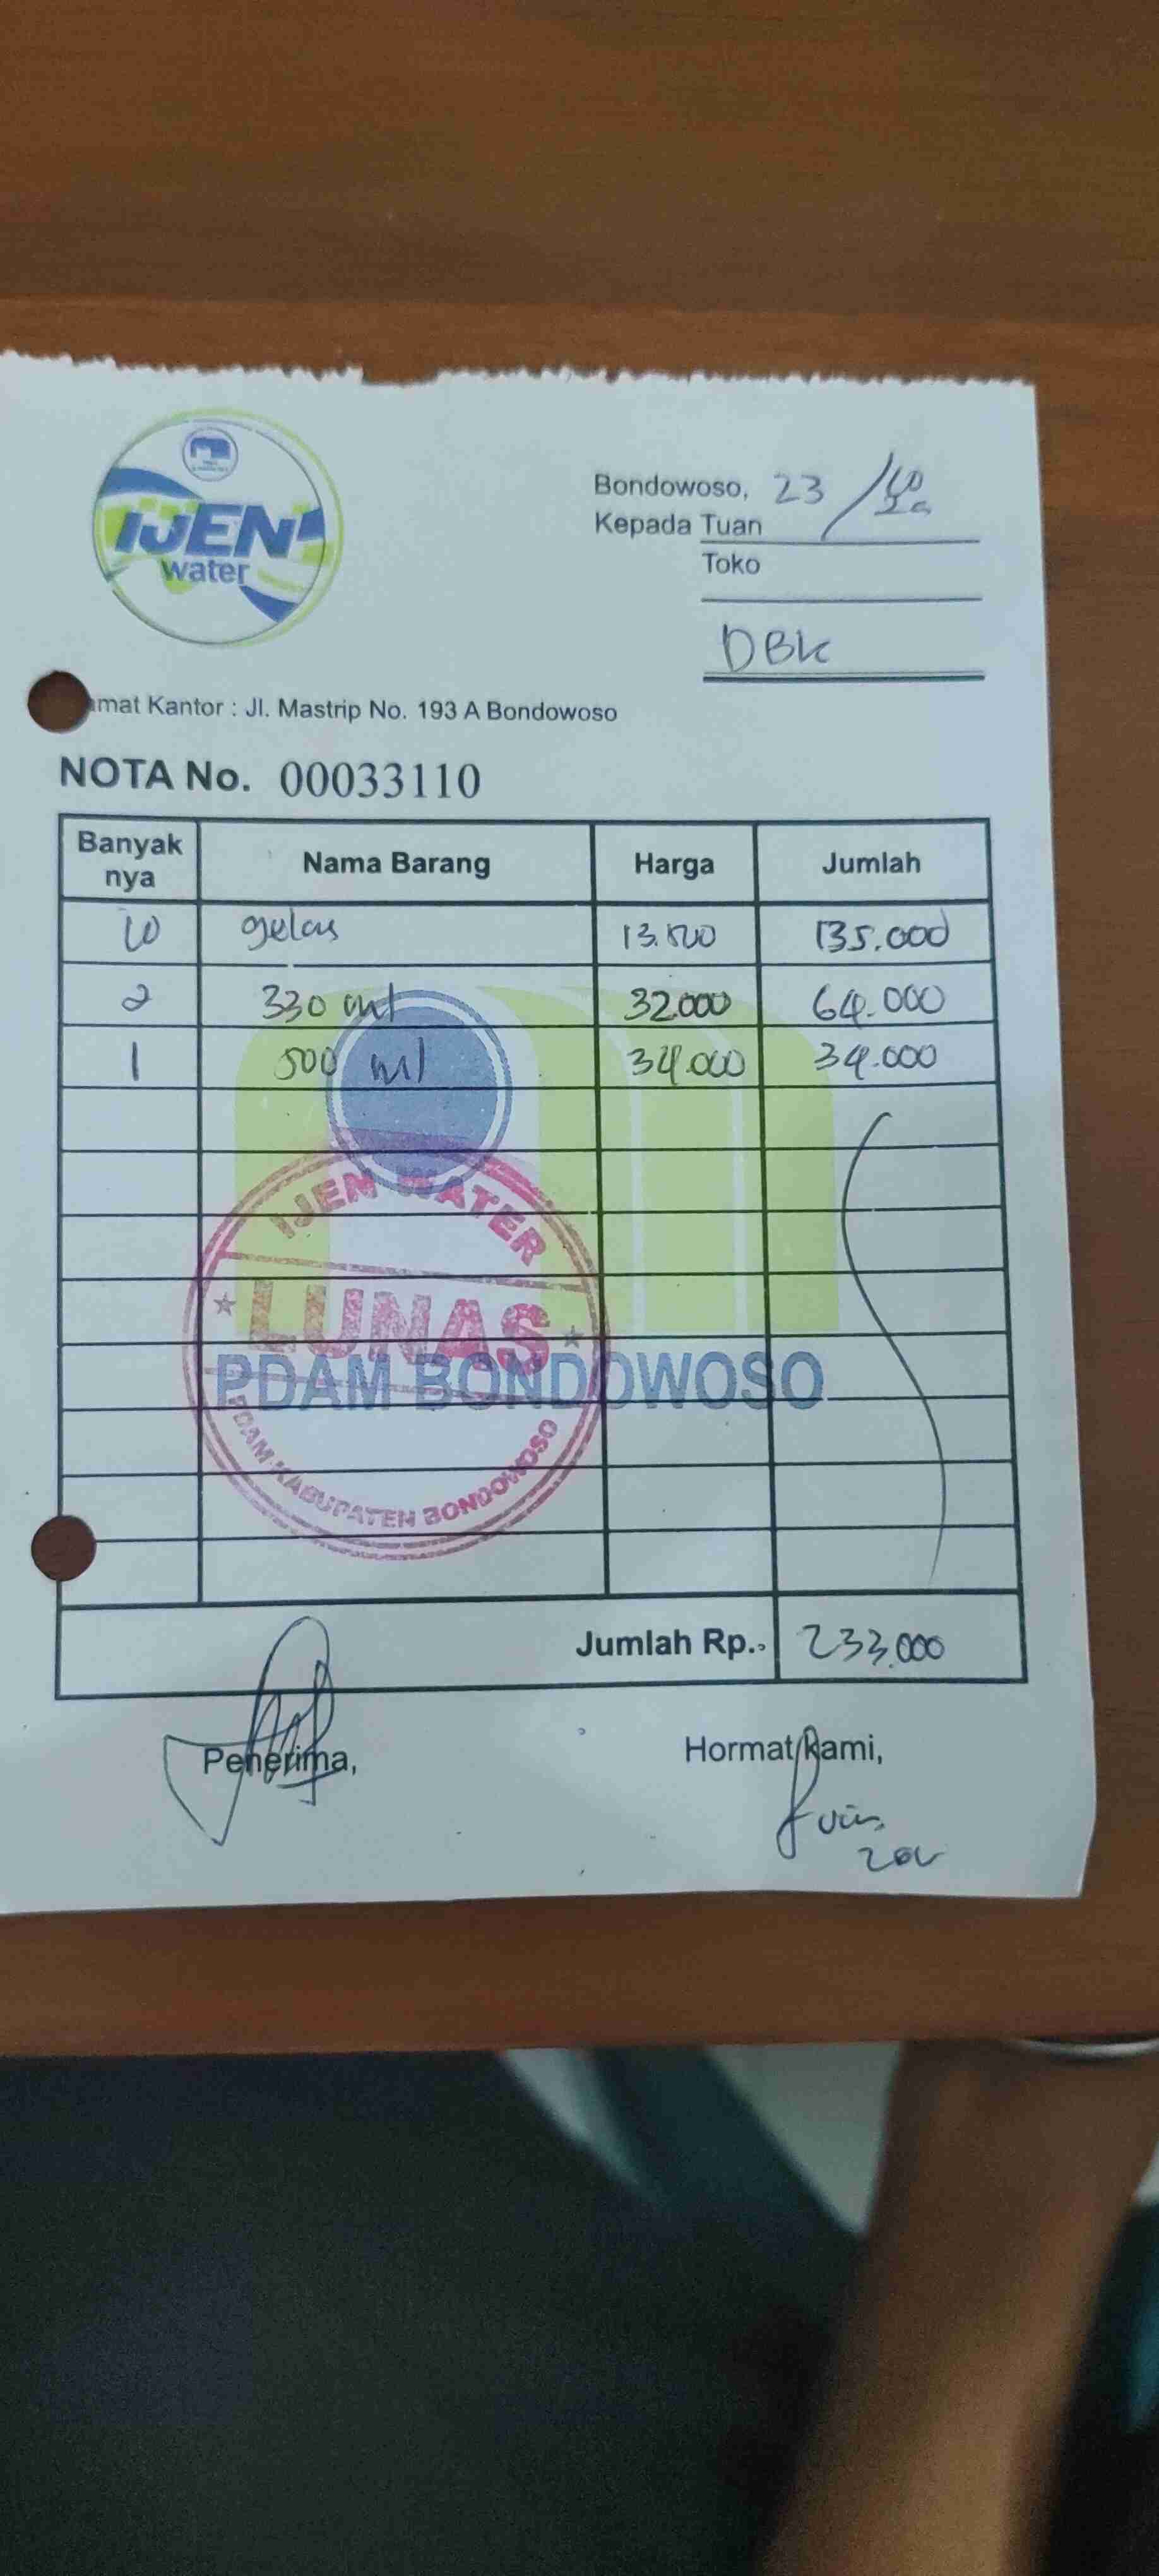 IJEN
water
Bondowoso, 23 / 10
Kepada Tuan
Toko
DBK
amat Kantor : Jl. Mastrip No. 193 A Bondowoso
NOTA No. 00033110
Banyak nya Nama Barang Harga Jumlah
10 gelas 13.500 135.000
2 330 ml 32.000 64.000
1 500 ml 34.000 34.000
IJEN WATER
LUNAS
PDAM BONDOWOSO
PDAM KABUPATEN BONDOWOSO
Jumlah Rp. 233.000
Penerima,
Hormat Kami,